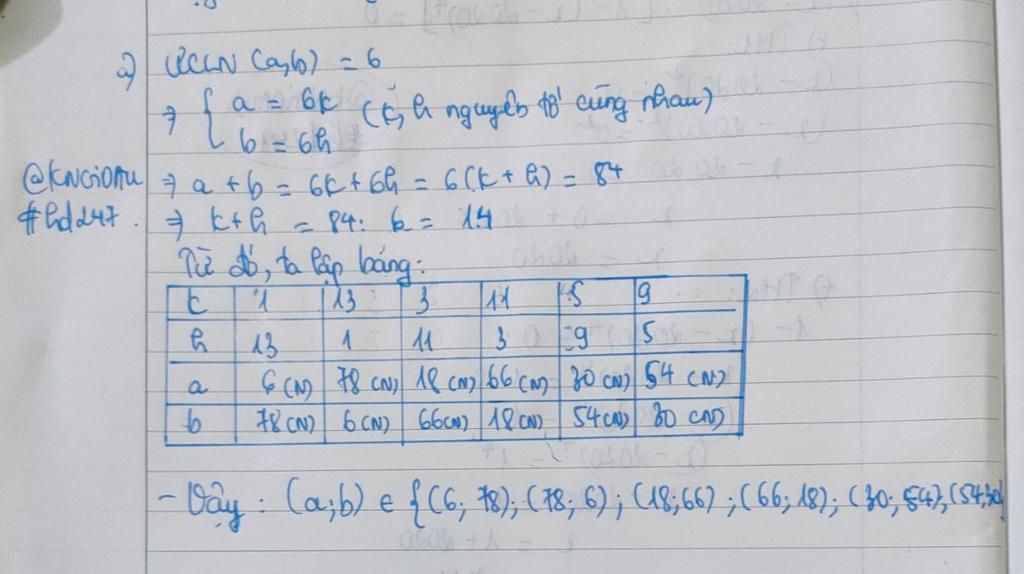 a) ƯCLN (a,b) = 6
⇒ { a = 6k
b = 6h (k, h nguyên tố cùng nhau)
⇒ a + b = 6k + 6h = 6(k + h) = 84
@KNGIOMU
#hd247.
⇒ k+h = 84: 6 = 14
Từ đó, ta lập bảng:
k 1 13 3 11 5 9
h 13 1 11 3 9 5
a 6 (N) 78 (N) 18 (N) 66 (N) 30 (N) 54 (N)
b 78 (N) 6 (N) 66 (N) 18 (N) 54 (N) 30 (N)
- Vậy : (a;b) ∈ {(6; 78); (78; 6) ; (18;66) ; (66; 18); (30; 54); (54;30)